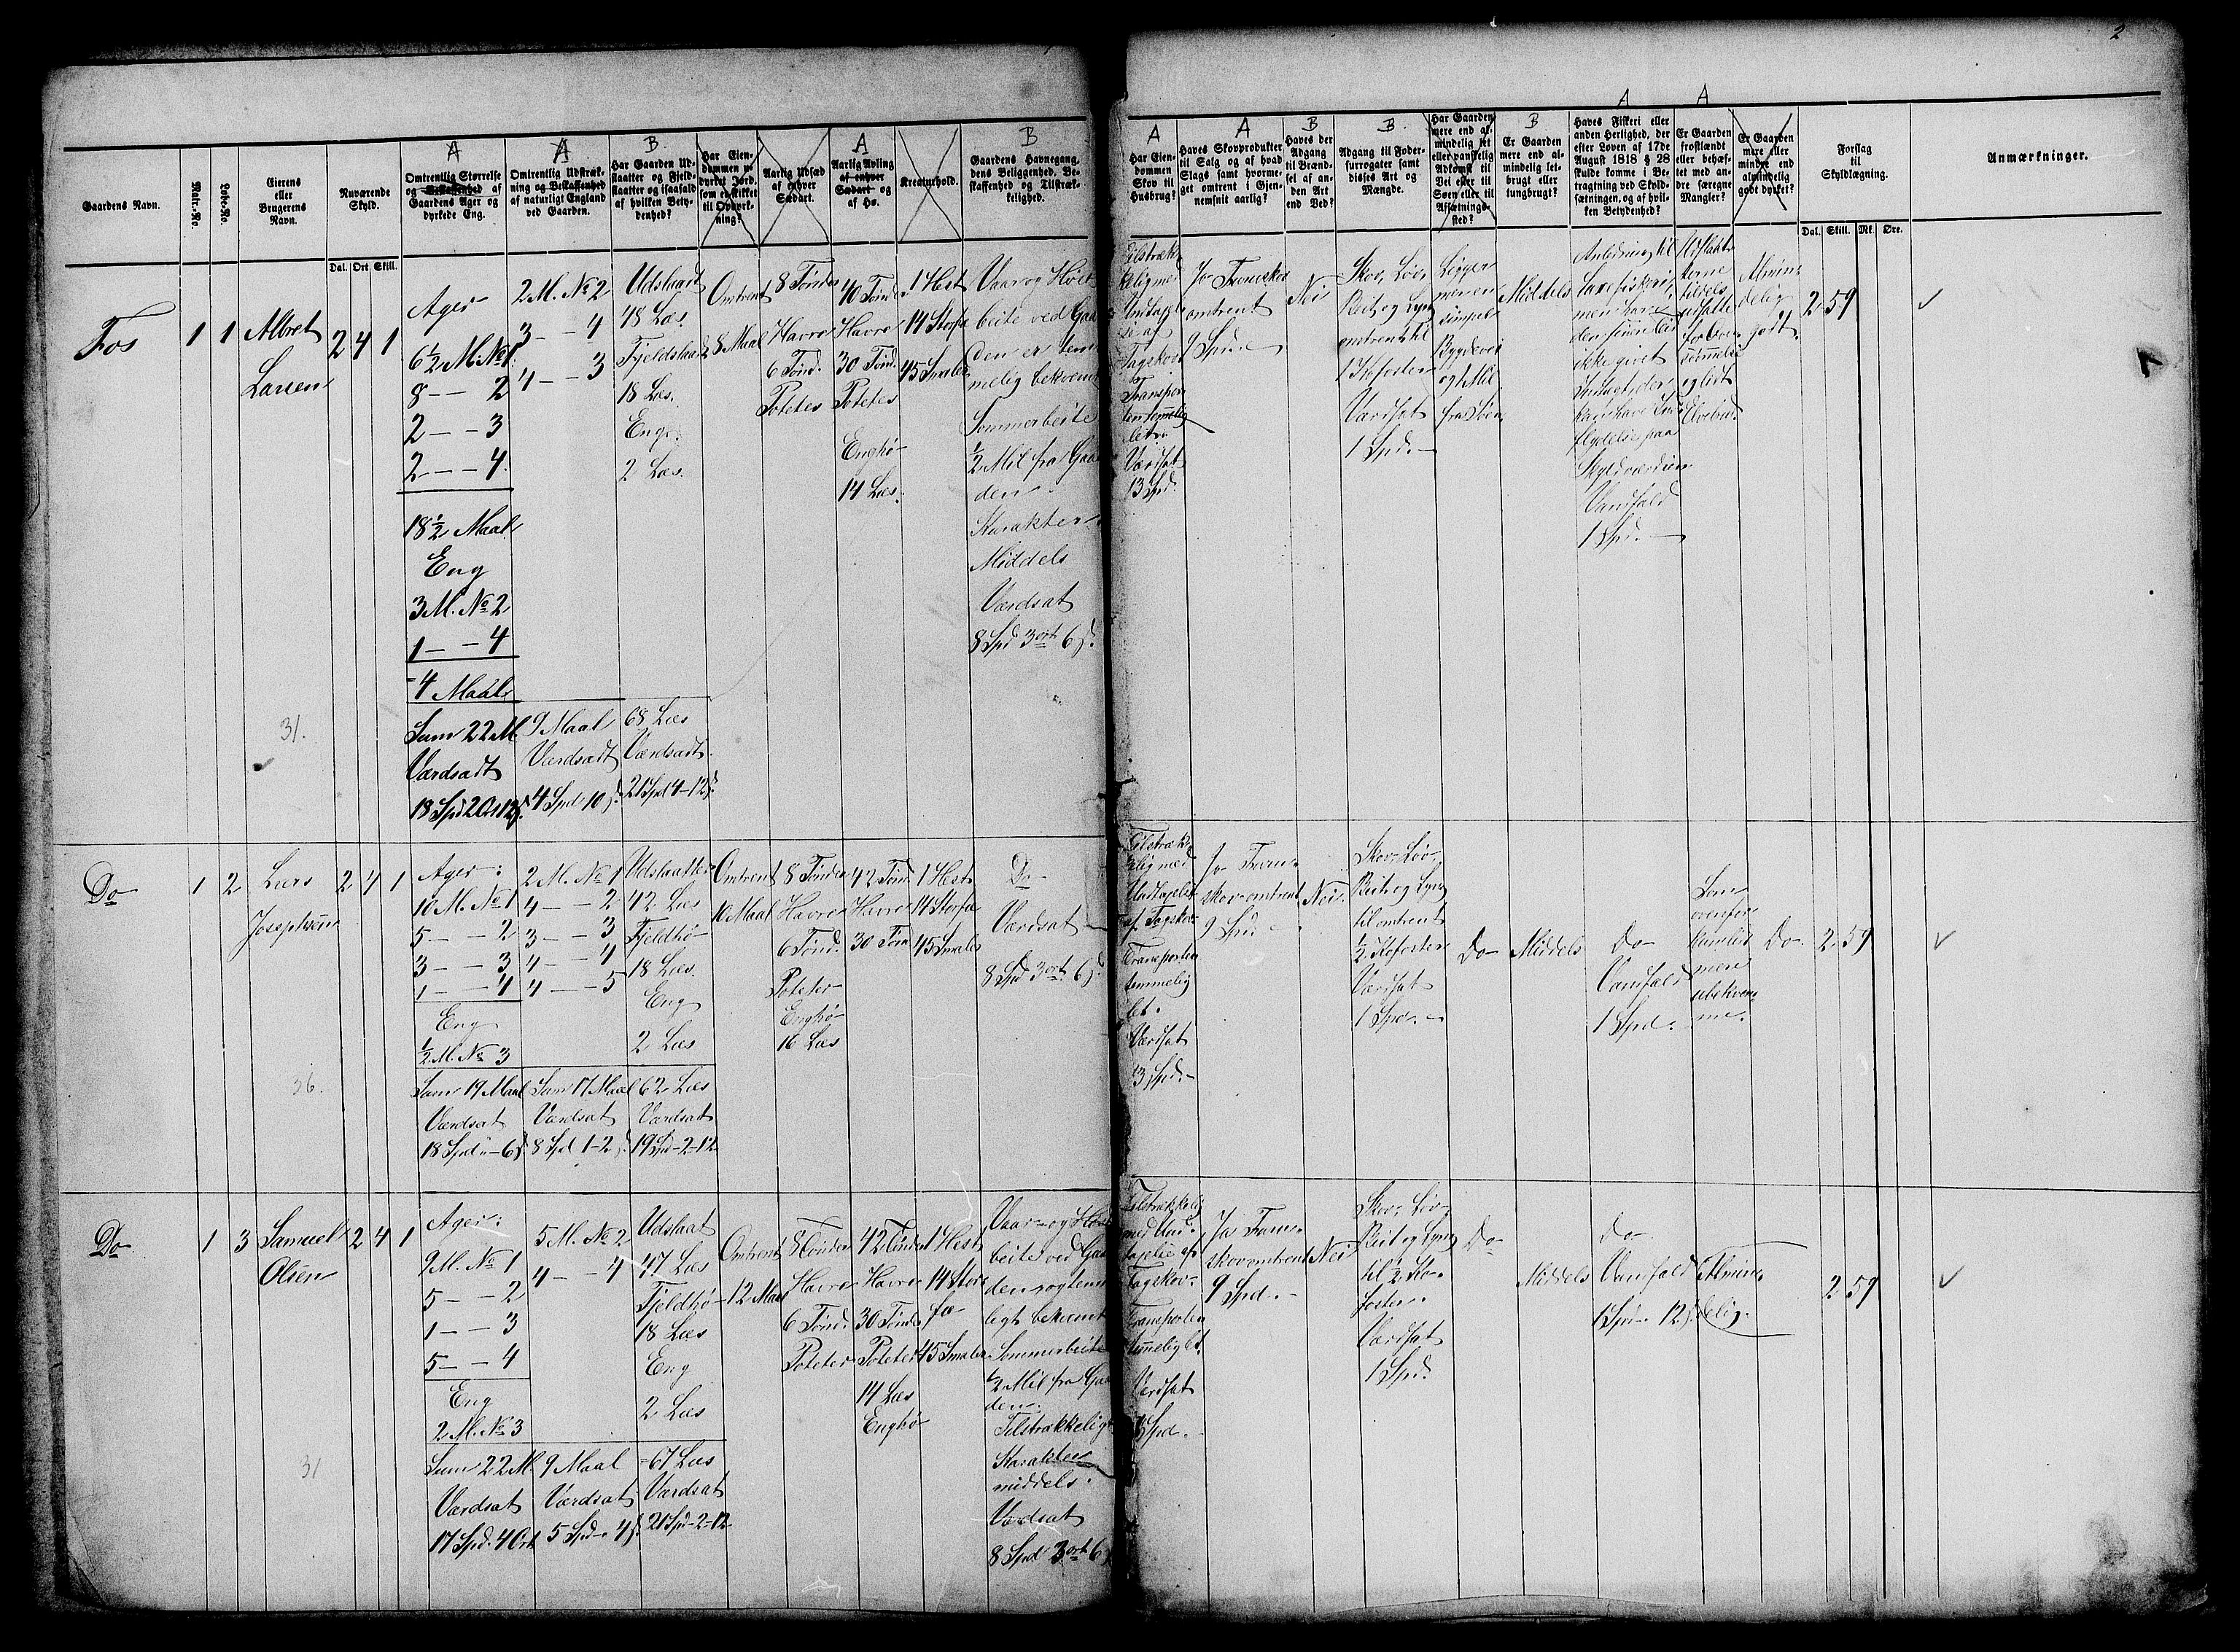 2
A
A
B
A
B
A
A
B
B
B
A
A
Gaardens Navn.
Matr.-No.
Løbe-No.
Eierens eller Brugerens Navn.
Nuværende Skyld.
Dal. Ort Skill.
Omtrentlig Størrelse og Beskaffenhed af Gaardens Ager og dyrkede Eng.
Omtrentlig Udstrækning og Beskaffenhed af naturligt England ved Gaarden.
Har Gaarden Udslaatter og Fjeldslaatter og isaafald af hvilken Betydenhed?
Har Eiendommen udyrket Jord, som er skikket til Opdyrkning?
Aarlig Udsæd af enhver Sædart.
Aarlig Avling af enhver Sædart og af Hø.
Kreaturhold.
Gaardens Havnegang, dens Beliggenhed, Beskaffenhed og Tilstrækkelighed.
Har Eiendommen Skov til Husbrug?
Haves Skovprodukter til Salg og af hvad Slags samt hvormeget omtrent i Gjennemsnit aarlig?
Haves der Adgang til Brændsel af anden Art end Ved?
Adgang til Fodersurrogater samt disses Art og Mængde.
Har Gaarden mere end almindelig let eller vanskelig Adkomst til Vei eller til Søen eller til Afsætningssted?
Er Gaarden mere end almindelig letbrugt eller tungbrugt?
Haves Fiskeri eller anden Herlighed, der efter Loven af 17de August 1818 § 28 skulde komme i Betragtning ved Skyldsætningen, og af hvilken Betydenhed?
Er Gaarden frostlændt eller behæftet med andre særegne Mangler?
Er Gaarden mere eller mindre end almindelig godt dyrket?
Forslag til Skyldlægning.
Dal. Skill. Mk. Øre.
Anmærkninger.
Fos
1
1
Albret
Larsen
2 4 1
31.
Ager
6½ M. No 1.
8 - - 2
2 - - 3
2 - - 4.
18½ Maal
Eng
3 M. No 2
1 - - 4
4 Maal
Sum 22 M.
Værdsadt
2 M. No 2
3 - 4
4 - - 3
9 Maal
Værdsadt
4 Spd 10 s.
Udslaadt
48 Læs.
Fjeldslaadt
18 Læs.
Eng.
2 Læs.
68 Læs
Værdsadt
21 Spd 4-12 s.
Omtrent
8 Maal
8 Tønder
Havre
6 Tønd.
Poteter
40 Tønder
Havre
30 Tønd.
Poteter
Enghø
14 Læs.
1 Hest
14 Storfæ
45 Smaler
Vaar og Høst
beite ved Gaar
den er tem
melig bekvem
Sommerbeite
½ Mil fra Gaar
den.
Karakter
Middels
Værdsat
8 Spd 3 ort 6 s.
Tilstræk
kelig med
Undtagel
se af
Fagskov
Transpor
ten temmelig
let.
Værdsat
13 Spd.
Ja Fureskov
omtrent
9 Spd.
Nei
Skov, Løv,
Beit og Lyng
omtrent til
1 Kofoster
Værdsat
1 Spd.
Ligger
med en
simpel
Bygdevei
og 1 Mil
fra Søen
Middels
Anledning til
Laxefiskeri,
men har i
den senere Tid
ikke givet
Indtægter,
kan have Ind
flydelse paa
Skyldværdien
Vandfald
1 Spd.
Udslaat
terne
tildels
udsatte
for Over
svømmelse
og lidt
Elvebrud.
Almin
delig
godt.
2 59
Do
1
2
Lars
Josephsen
2 4 1
36.
Ager:
10 M. No 1
5 - - 2
3 - - 3
1 - - 4
Eng
½ M. No 3
Sum 19 Maal
Værdsat
18 Spd - 6 s.
2 M. No 1
4 - - 2
3 - - 3
4 - - 4
4 - - 5
Sum 17 Maal
Værdsat
8 Spd 1-2 s.
Udslaatter
42 Læs
Fjeldhø
18 Læs.
Eng
2 Læs
62 Læs
Værdsat
19 Spd - 2 - 12
Omtrent
10 Maal
8 Tønder
Havre
6 Tønd.
Poteter
Enghø
16 Læs
42 Tønd
Havre
30 Tønd
1 Hest
14 Storfæ
45 Smaler
Do
Værdsat
8 Spd 3 ort 6 s.
Tilstræk
kelig med
Undtagelse
af Fagskov
Transporten
temmelig
let.
Værdsat
13 Spd.
Ja Fure
skov omtrent
9 Spd
Nei
Skov, Løv,
Beit og Lyng
til omtrent
½ Kofoster
Værdsat
1 Spd.
Do
Middels
Do
Vandfald
1 Spd.
Som
ovenfor
kun lidt
mere
ubekvem
me.
Do
2 59
Do
1
3
Samuel
Olsen
2 4 1
31
Ager:
9 M. No 1
5 - - 2
1 - - 3
5 - - 4
Eng
2 M. No 3
Sum 22 M.
Værdsat
17 Spd. 4 Ort
5 M. No 2
4 - - 4
9 Maal
Værdsat
5 Spd - 4 s.
Udslaat
47 Læs
Fjeldhø
18 Læs
Eng
2 Læs
67 Læs
Værdsat
21 Spd - 2 - 12
Omtrent
12 Maal
8 Tønder
Havre
6 Tønd.
Poteter
42 Tønder
Havre
30 Tønder
Poteter
14 Læs
Enghø
1 Hest
14 Stor
fæ
45 Smaler
Vaar og Høst
beite ved Gaar
den og tem
ligt bekvemt
Sommerbeite
½ Mil fra Gaar
den.
Tilstrækkeligt
Karakter
middels.
Værdsat
8 Spd 3 ort 6 s.
Tilstrækkelig
med Und
tagelse af
Fagskov.
Transporten
temmelig let.
Værdsat
13 Spd.
Ja Fure
skov omtrent
9 Spd.
Nei
Skov, Løv,
Beit og Lyng
til ½ Ko
foster.
Værdsat
1 Spd.
Do
Middels
Do
Vandfald
1 Spd. 12 s.
Almin
delig.
2 59